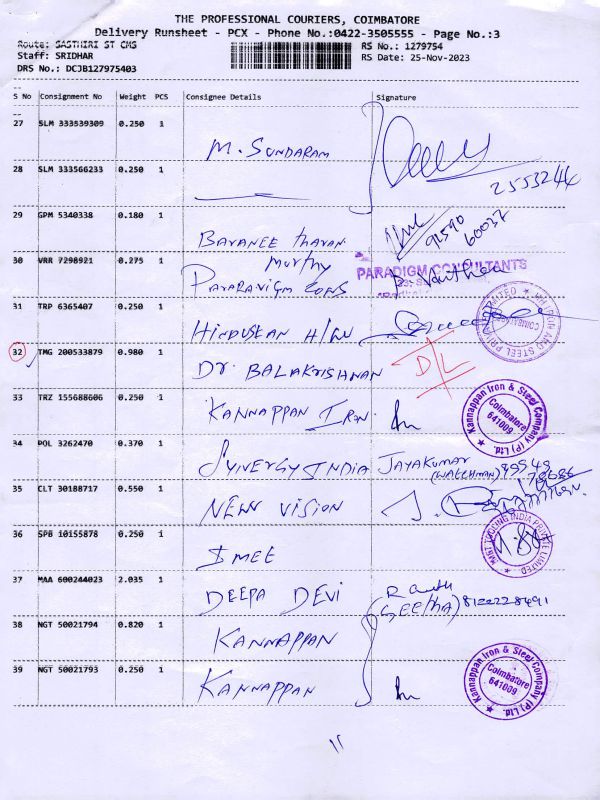 THE PROFESSIONAL COURIERS, COIMBATORE
Delivery Runsheet - PCX - Phone No.:0422-3505555 - Page No.:3
Route: SASTHIRI ST CMS RS No.: 1279754
Staff: SRIDHAR RS Date: 25-Nov-2023
DRS No.: DCJB127975403
S No Consignment No Weight PCS Consignee Details Signature
27 SLM 333539309 0.250 1
M. SUNDARAM
28 SLM 333566233 0.250 1
2553244
29 GPM 5340338 0.180 1
BARANEE tharan 91590
60037
30 VRR 7298921 0.275 1 Murthy
PARADIGM CONSULTANTS
31 TRP 6365407 0.250 1
HINDUSTAN
32 TMG 200533879 0.980 1 D/L
DR. BALAKRISHNAN
33 TRZ 155688606 0.250 1
KANNAPPAN IRON
Kannappan Iron & Steel Company (P) Ltd.
Coimbatore
641009
34 POL 3262470 0.370 1
SYNERGY INDIA JAYAKUMAR
(WATCHMAN) 99549
35 CLT 30188717 0.550 1 178686
NEW VISION
36 SPB 10155878 0.250 1
IMEE
37 MAA 600244023 2.035 1
DEEPA DEVI (SEETHA) 8122228491
38 NGT 50021794 0.820 1
KANNAPPAN
39 NGT 50021793 0.250 1
KANNAPPAN
Kannappan Iron & Steel Company (P) Ltd.
Coimbatore
641009
11